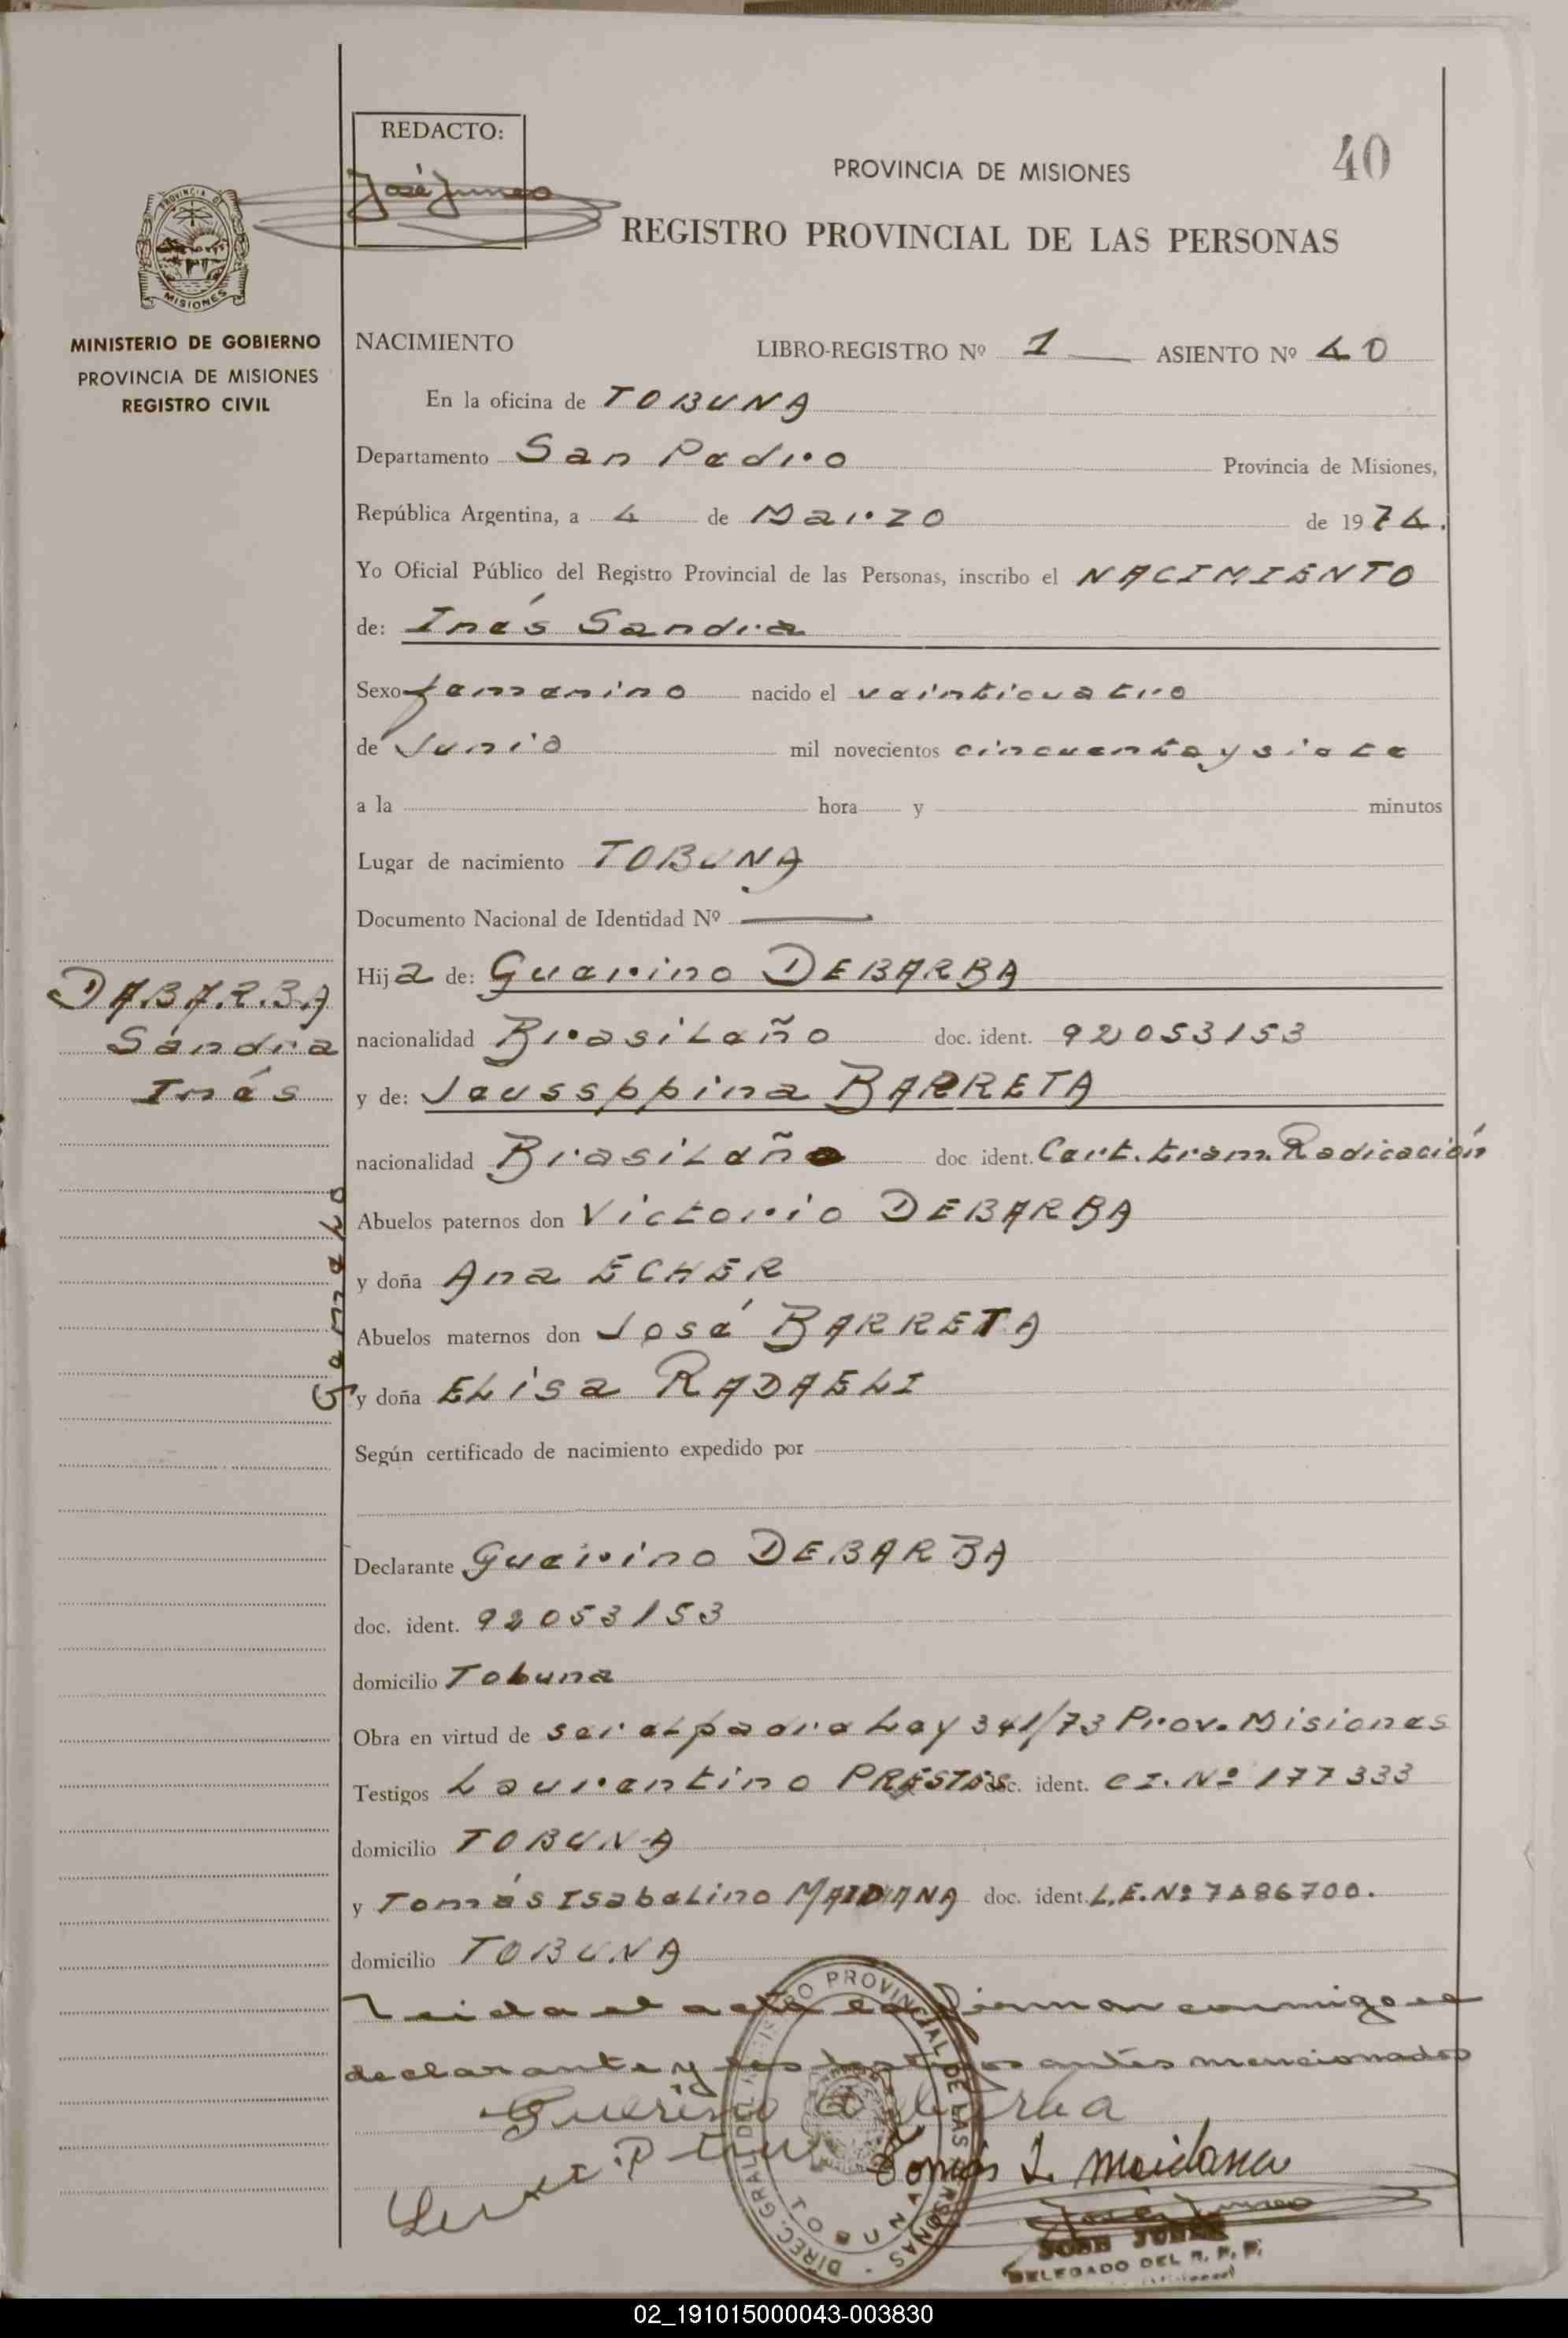 REDACTO:
José Juneo
40
PROVINCIA DE MISIONES
REGISTRO PROVINCIAL DE LAS PERSONAS
PROVINCIA DE
MISIONES
MINISTERIO DE GOBIERNO
PROVINCIA DE MISIONES
REGISTRO CIVIL
NACIMIENTO LIBRO-REGISTRO Nº 1 ASIENTO Nº 40
En la oficina de TOBUNA
Departamento San Pedro Provincia de Misiones,
República Argentina, a 4 de Marzo de 1974.
Yo Oficial Público del Registro Provincial de las Personas, inscribo el NACIMIENTO
de: Inés Sandra
Sexo femenino nacido el veinticuatro
de Junio mil novecientos cincuenta y siete
a la hora y minutos
Lugar de nacimiento TOBUNA
Documento Nacional de Identidad Nº
DABARBA
Sandra
Inés
Gemelo
Hija de: Guerino DEBARBA
nacionalidad Brasileño doc. ident. 92053153
y de: Jeussppina BARRETA
nacionalidad Brasileña doc ident. Cert. tram. Radicación
Abuelos paternos don Victorio DEBARBA
y doña Ana ECHER
Abuelos maternos don José BARRETA
y doña Elisa RADAELI
Según certificado de nacimiento expedido por
Declarante Guerino DEBARBA
doc. ident. 92053153
domicilio Tobuna
Obra en virtud de ser el padre Ley 341/73 Prov. Misiones
Testigos Laurentino PRESTES doc. ident. CI. Nº 177333
domicilio TOBUNA
y Tomás Isabelino MAIDANA doc. ident. L.E. Nº 7486700.
domicilio TOBUNA
Leida el acta la firman conmigo el
declarante y los testigos antes mencionados
Guerino debarba
Tomás I. Maidana
José Juneo
DIREC. GRAL. DEL REGISTRO PROVINCIAL DE LAS PERSONAS
TOBUNA
DELEGADO DEL R. P. P.
02_191015000043-003830